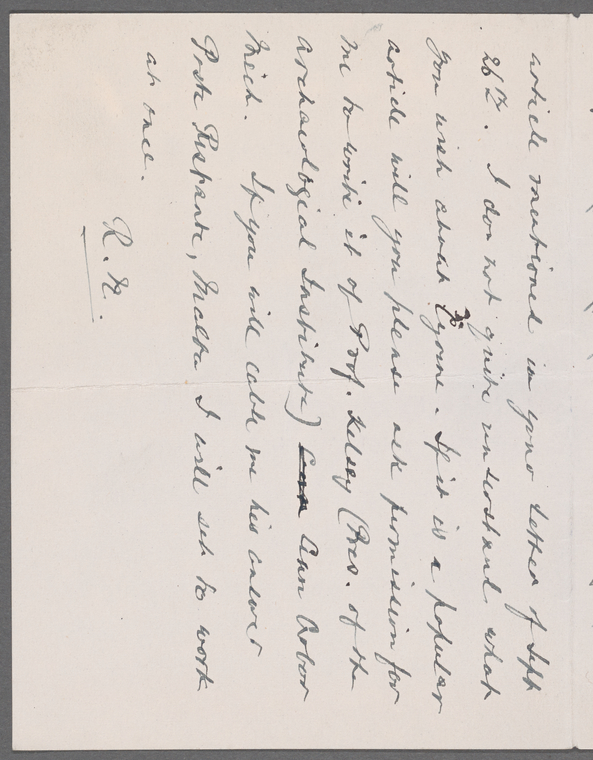 article mentioned in your letter of Sept
26th. I do not quite understand what
you wish about Cyrene. If it is a popular
article will you please ask permission for
me to write it of Prof. Kelsey (Pres. of the
Archaeological Institute) Ann Arbor
Mich. If you will cable me his answer
Poste Restante, Malta I will set to work
at once.
R. N.